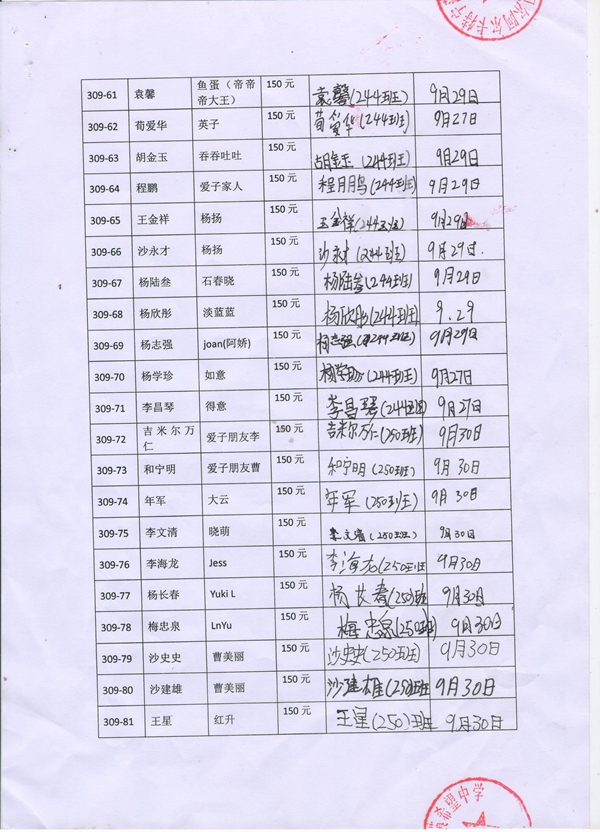 309-61 袁馨 鱼蛋（帝帝 150元 袁馨(244班) 9月29日
帝大王）
309-62 荀爱华 英子 150元 荀爱华(244班) 9月27日
309-63 胡金玉 吞吞吐吐 150元 胡金玉(244班) 9月29日
309-64 程鹏 爱子家人 150元 程鹏(244班) 9月29日
309-65 王金祥 杨扬 150元 王金祥(244班) 9月29日
309-66 沙永才 杨扬 150元 沙永才(244班) 9月29日.
309-67 杨陆叁 石春晓 150元 杨陆叁(244班) 9月29日
309-68 杨欣彤 淡蓝蓝 150元 杨欣彤(244班) 9.29
309-69 杨志强 joan(阿娇) 150元 杨志强(244班) 9月29日
309-70 杨学珍 如意 150元 杨学珍(244班) 9月27日
309-71 李昌琴 得意 150元 李昌琴(244班) 9月27日
309-72 吉米尔万 爱子朋友李 150元 吉米尔万仁(250班) 9月30日
仁
309-73 和宁明 爱子朋友曹 150元 和宁明(250班) 9月30日
309-74 年军 大云 150元 年军(250班) 9月30日
309-75 李文清 晓萌 150元 李文清(250班) 9月30日
309-76 李海龙 Jess 150元 李海龙(250班) 9月30日
309-77 杨长春 Yuki L 150元 杨长春(250班) 9月30日
309-78 梅忠泉 LnYu 150元 梅忠泉(250班) 9月30日
309-79 沙史史 曹美丽 150元 沙史史(250班) 9月30日
309-80 沙建雄 曹美丽 150元 沙建雄(250班 9月30日
309-81 王星 红升 150元 王星(250)班 9月30日
希望中学